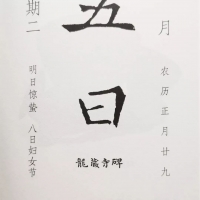 月
五日
期二
农历正月廿九
明日惊蛰 八日妇女节
龙藏寺碑